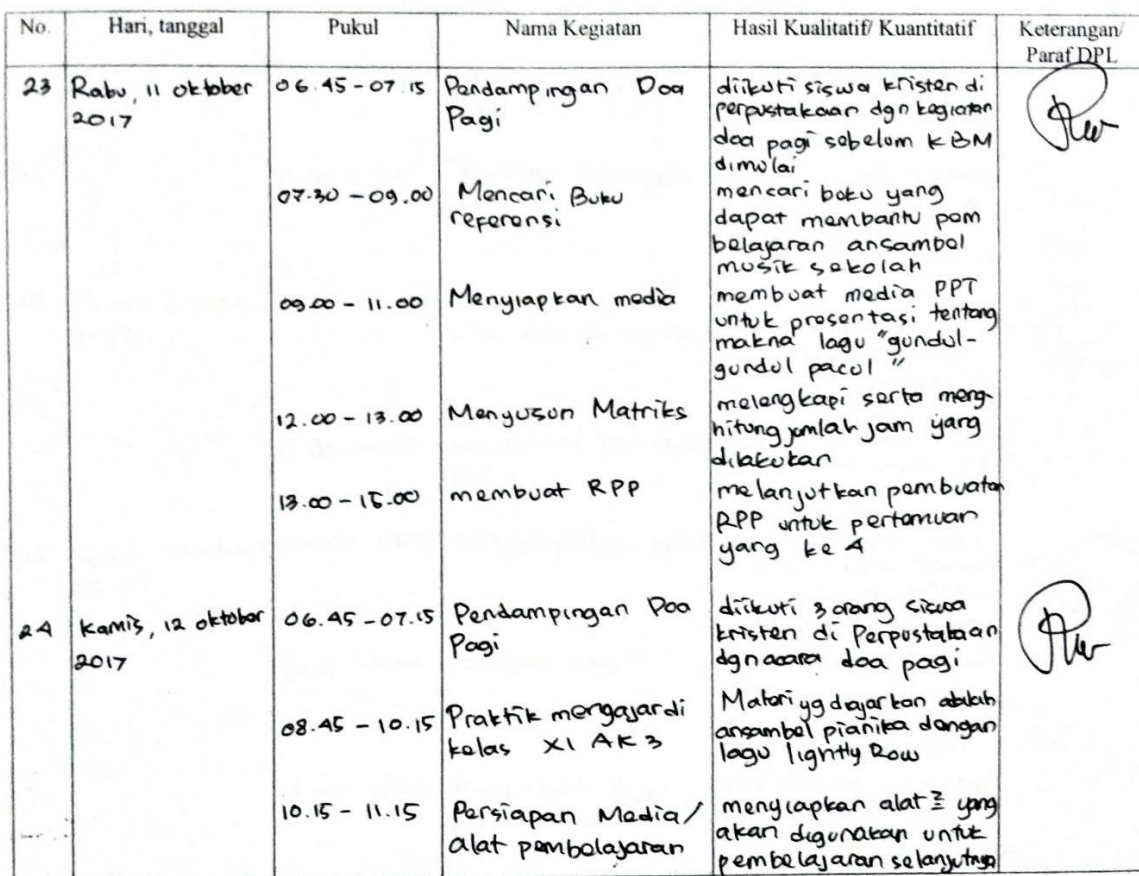 No. Hari, tanggal Pukul Nama Kegiatan Hasil Kualitatif/ Kuantitatif Keterangan/
Paraf DPL
23 Rabu, 11 oktober 06.45-07.15 Pendampingan Doa diikuti siswa kristen di
2017 Pagi perpustakaan dgn kegiatan
doa pagi sebelum KBM
dimulai
07.30 - 09.00 Mencari Buku mencari buku yang
referensi dapat membantu pem
belajaran ansambel
musik sekolah
09.00 - 11.00 Menyiapkan media membuat media PPT
untuk presentasi tentang
makna lagu "gundul-
gundul pacul"
12.00 - 13.00 Menyusun Matriks melengkapi serta meng-
hitung jumlah jam yang
dilakukan
13.00 - 15.00 membuat RPP melanjutkan pembuatan
RPP untuk pertemuan
yang ke 4
24 Kamis, 12 oktober 06.45-07.15 Pendampingan Doa diikuti 3 orang siswa
2017 Pagi kristen di Perpustakaan
dgn acara doa pagi
08.45 - 10.15 Praktik mengajar di Materi yg diajarkan adalah
kelas XI AK 3 ansambel pianika dengan
lagu lightly Row
10.15 - 11.15 Persiapan Media/ menyiapkan alat2 yang
alat pembelajaran akan digunakan untuk
pembelajaran selanjutnya